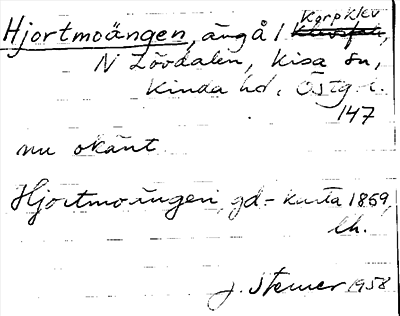 Hjortmoängen, äng å 1 Korpklev
N Lövdalen, Kisa sn,
Kinda hd, Östg.l.
147
nu okänt
Hjortmoängen, gd-karta 1869,
lh.
J. Sterner 1958